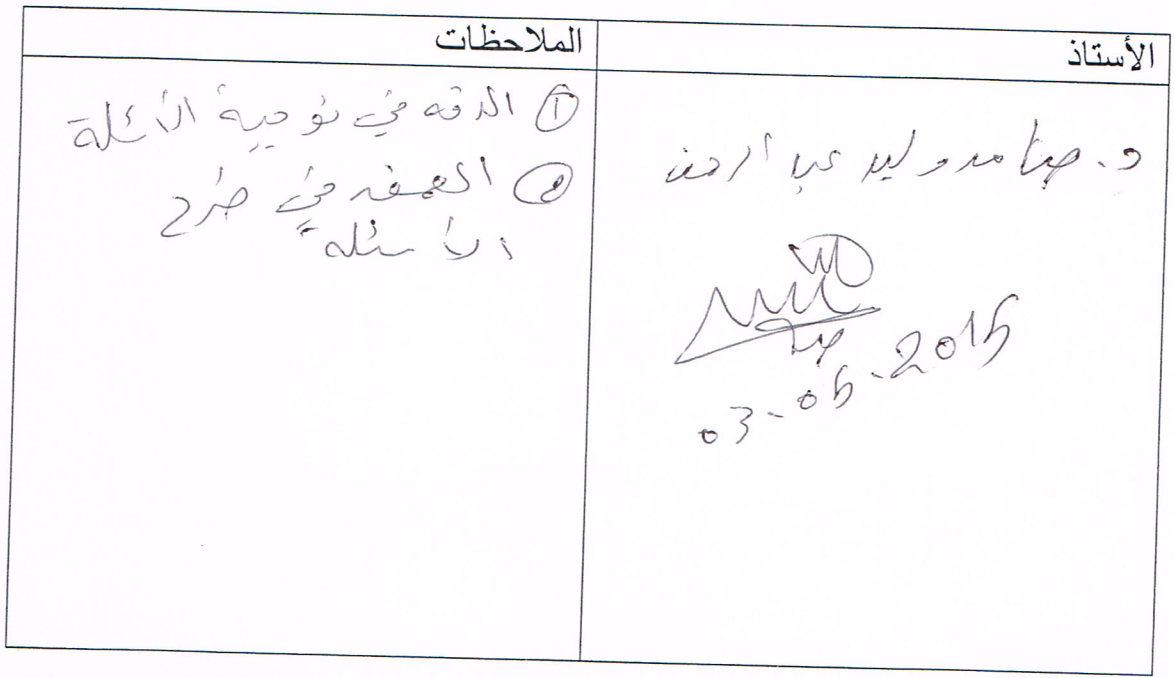 الأستاذ
الملاحظات
د. صامد وليد عبد الرحمن
03-05-2015
① الدقه في توجية الأسئلة
② العمق في طرح
الأسئله